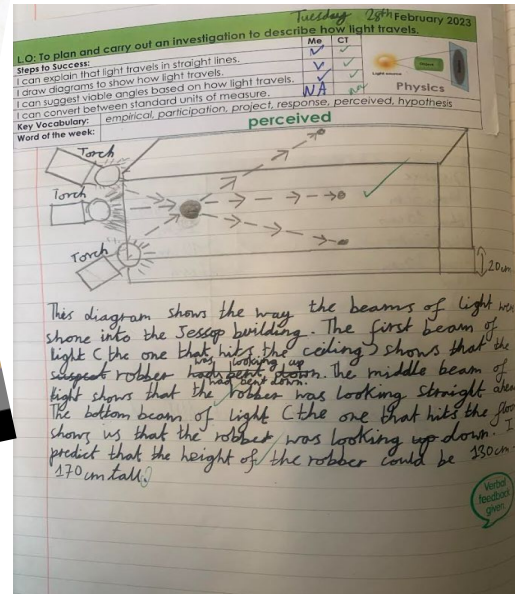 Tuesday 28th February 2023
L.O: To plan and carry out an investigation to describe how light travels.
Steps to Success:
Me CT
I can explain that light travels in straight lines.
I draw diagrams to show how light travels.
I can suggest viable angles based on how light travels.
I can convert between standard units of measure.
NA
Light source
Physics
Key Vocabulary: empirical, participation, project, response, perceived, hypothesis
Word of the week: perceived
Torch
Torch
Torch
20cm
This diagram shows the way the beams of light
shone into the Jessop building. The first beam of
light (the one that hits the ceiling) shows that the
was looking up
suspect robber had bent down. The middle beam of
had bent down.
light shows that the robber was looking straight
The bottom beam of light (the one that hits the
shows us that the robber was looking up down. I
predict that the height of the robber could be 130cm
170cm tall.
Verbal
feedback
given